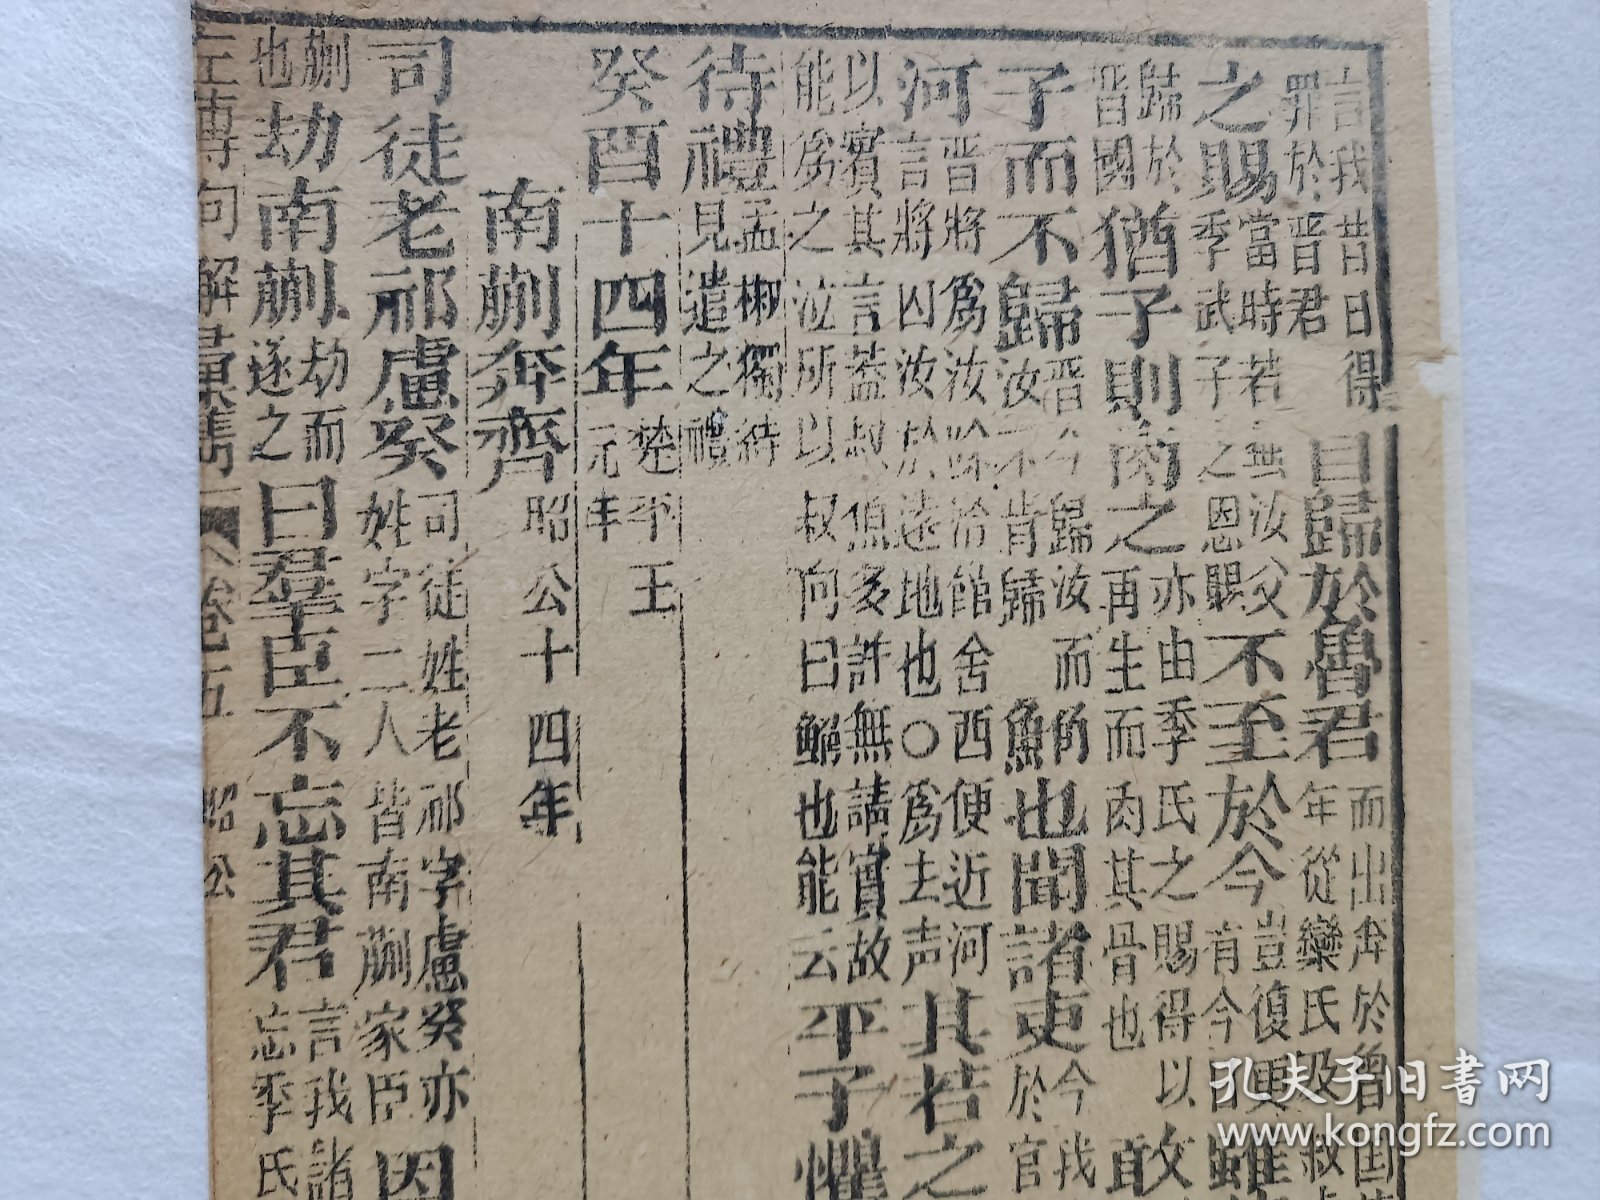 言我昔日得罪於晋君自歸於魯君而出奔於魯国年從欒氏及叔
之賜當時若無汝父季武子之恩賜不至於今豈復更有今日雖
歸於晋國猶子則肉之亦由季氏之賜得以再生而肉其骨也敢
子而不歸晋今歸汝而汝不肯歸鮒也聞諸吏今我於官
河晋將爲汝除治館舍西便近河言將囚汝於遠地也○爲去声其若之
以實其言蓋叔魚多詐無請實故能爲之泣所以叔向曰鮒也能云平子懼
待禮孟椒獨待見遣之禮
癸酉十四年楚平王元年
南蒯奔齊昭公十四年
司徒老祁慮癸司徒姓老祁字慮癸亦姓字二人皆南蒯家臣因
蒯也劫南蒯劫而遂之曰羣臣不忘其君言我諸忘季氏
左傳句解彙雋 卷五 昭公
孔夫子旧書网
www.kongfz.com